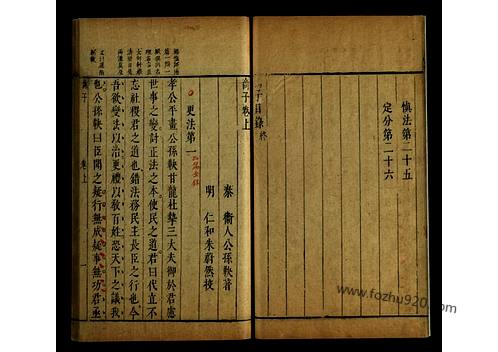 慎法第二十五
定分第二十六
子目錄終
商子卷上
秦 衞人公孫鞅著
明 仁和朱蔚然挍
更法第一
孝公平畫公孫鞅甘龍杜摯三大夫御於君慮
世事之變討正法之本使民之道君曰代立不
忘社稷君之道也錯法務民主長臣之行也今
吾欲變法以治更禮以敎百姓恐天下之議我
也公孫鞅曰臣聞之疑行無成疑事無功君亟
商子 卷上 一
www.fozhu920.com